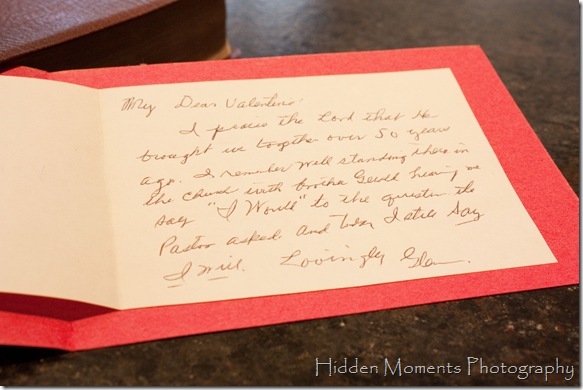 My Dear Valentine:
I praise the Lord that He
brought us together over 50 years
ago. I remember well standing there in
the church with brother Gerald hearing me
say "I Would" to the question the
Pastor asked. And today I still say
I will. Lovingly Glen
Hidden Moments Photography